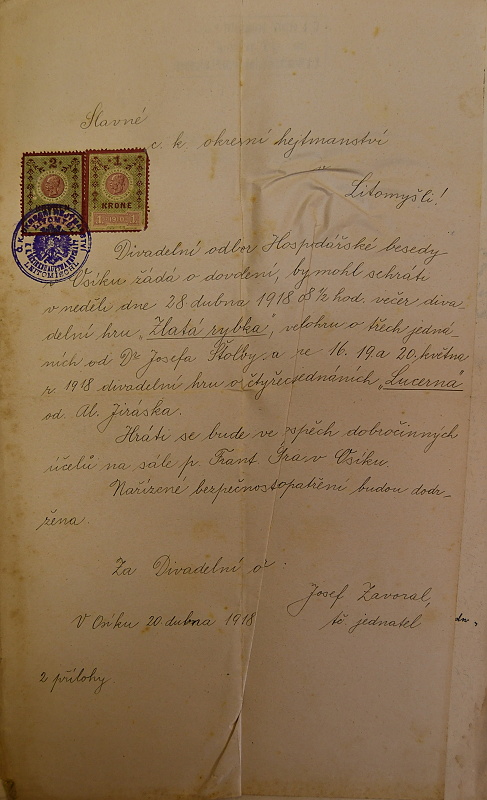 Slavné
c. k. okresní hejtmanství
v
Litomyšli!
2
1
KRONE
1 1910 1
Divadelní odbor Hospodářské besedy v
Osíku žádá o dovolení, by mohl sehráti
v neděli dne 28. dubna 1918 o 8½ hod. večer diva-
delní hru „Zlatá rybka", veselohru o třech jedná-
ních od Dr Josefa Štolby a ve 16. 19. a 20. května
r. 1918 divadelní hru o čtyřech jednáních „Lucerna"
od Al. Jiráska.
Hráti se bude ve spěch dobročinných
účelů na sále p. Frant. Šra v Osíku.
Nařízené bezpečnost. opatření budou dodr-
žena.
Za Divadelní o
Josef Zavoral,
V Osíku 20. dubna 1918
tč. jednatel
2 přílohy.